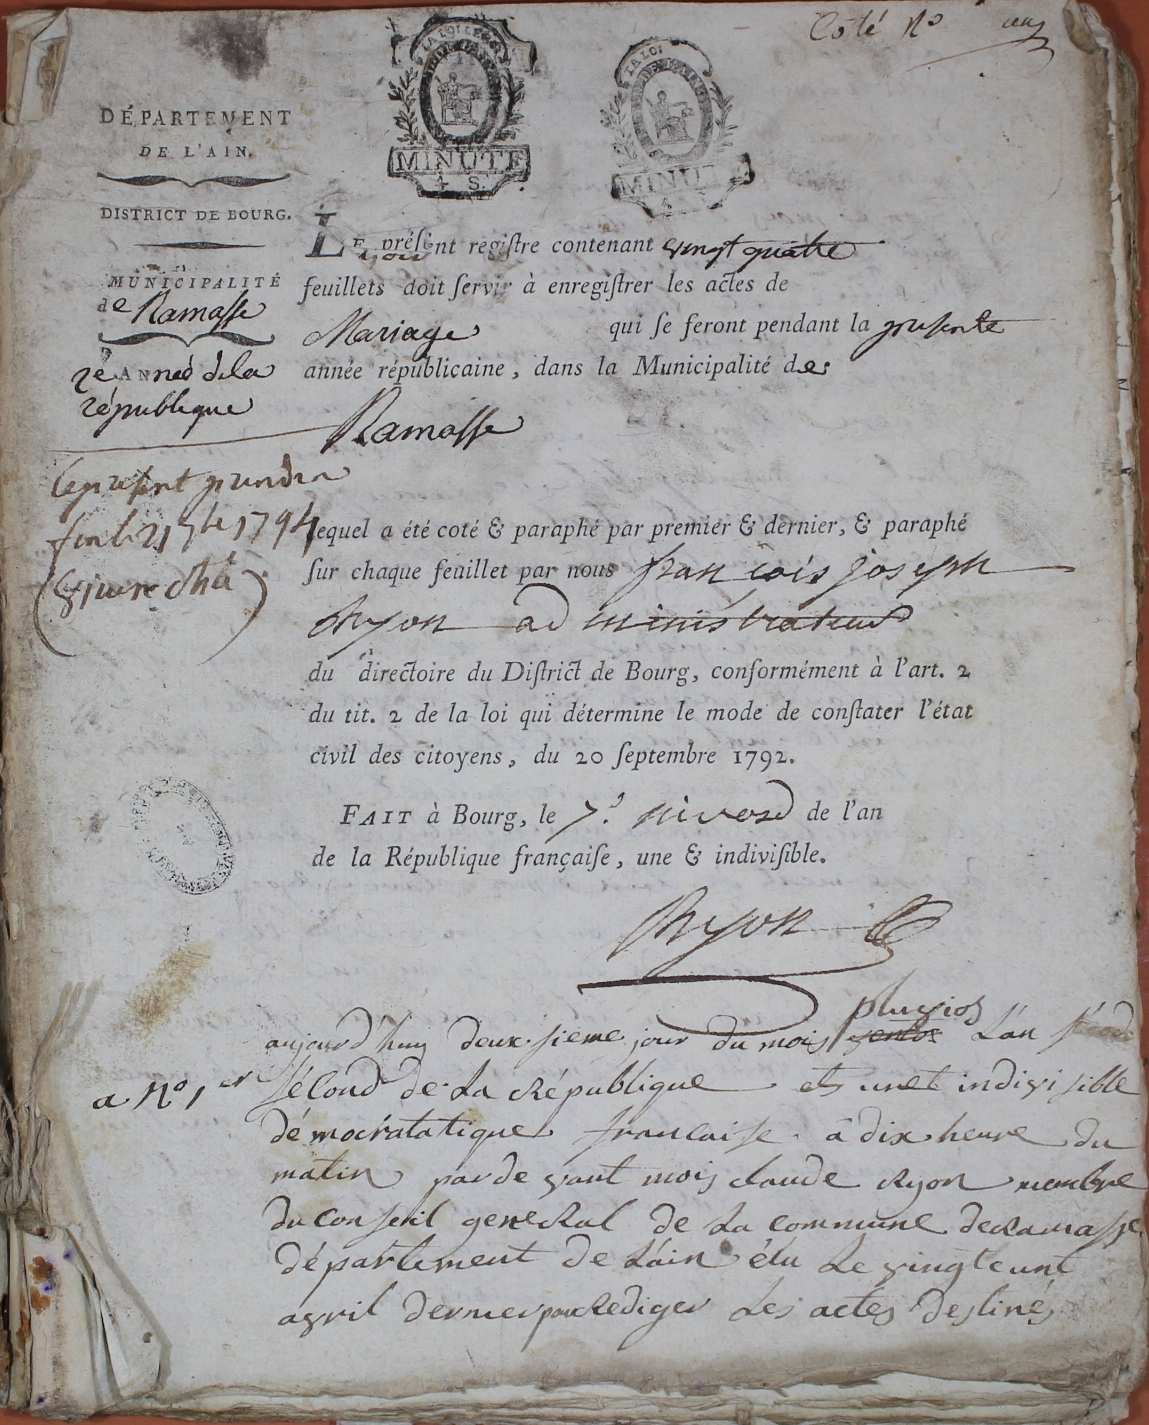 Coté No
LA LOI LE ROI
MINUTE
4 S.
LA LOI
MINUTE
4
DÉPARTEMENT
DE L'AIN.
DISTRICT DE BOURG.
MUNICIPALITÉ
de Ramasse
2e ANNeé dela
république
LE présent regiſtre contenant vingt quatre
feuillets doit ſervir à enregiſtrer les actes de
Mariage qui ſe feront pendant la presente
année républicaine, dans la Municipalité de
Ramasse
le present prendra
fin le 21 7bre 1794
lequel a été coté & paraphé par premier & dernier, & paraphé
ſur chaque feuillet par nous francois joseph
Ryon administrateur
du directoire du Diſtrict de Bourg, conformément à l'art. 2
du tit. 2 de la loi qui détermine le mode de conſtater l'état
civil des citoyens, du 20 ſeptembre 1792.
FAIT à Bourg, le 7. nivose de l'an
de la République françaiſe, une & indiviſible.
Ryon
pluvios
aujourd'huy deuxsieme jour du mois ventos L'an
a No 1er
sécond de La République et unet indivisible
démocratatique francaise â dix heure du
matin par de vant mois claude Ryon membre
du conseil general de La commune deRamasse
département de L'ain élu Le vingt eunt
avril dernier pour Rediger Les actes destinés